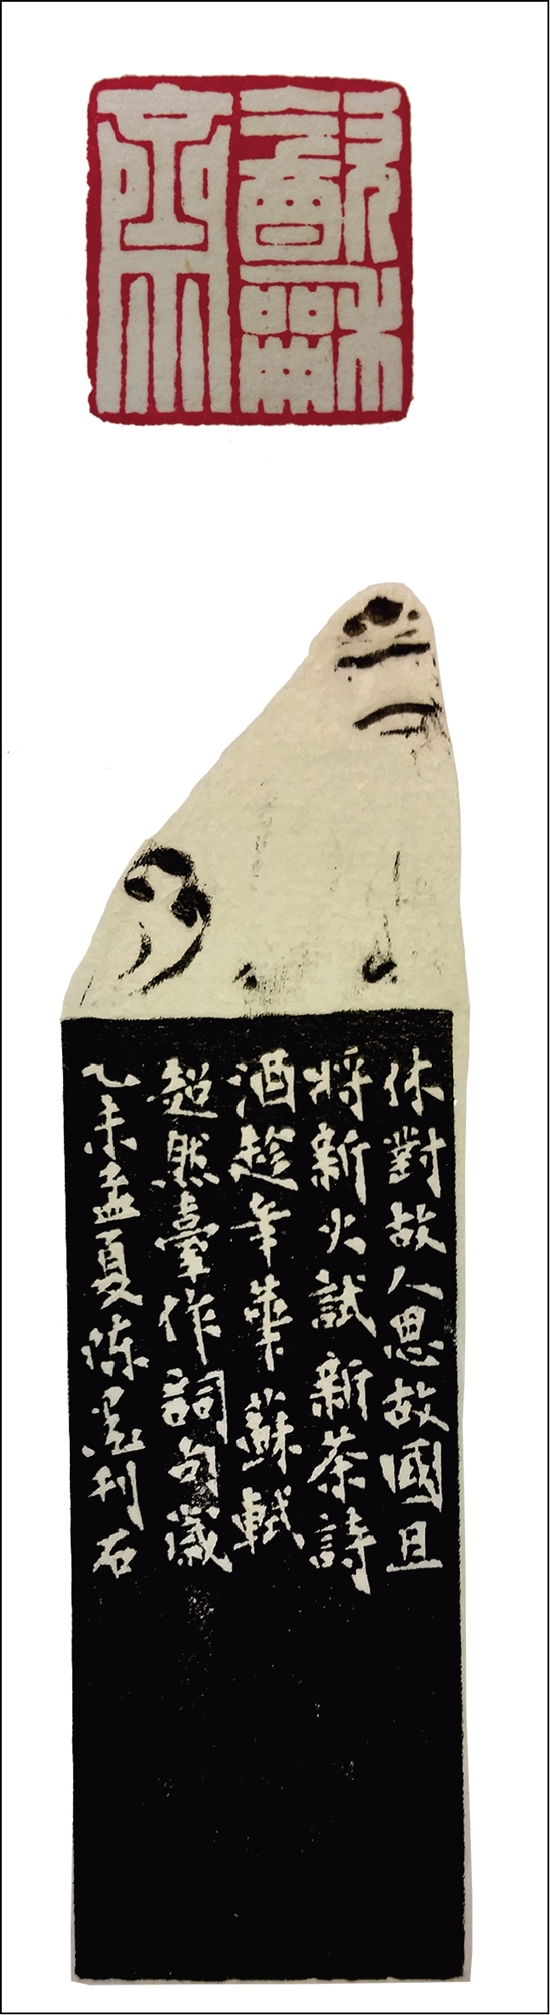 㱃龢
齋
休對故人思故國且
將新火試新茶詩
酒趁年華蘇軾
超然臺作詞句歲
乙未孟夏陈刊石